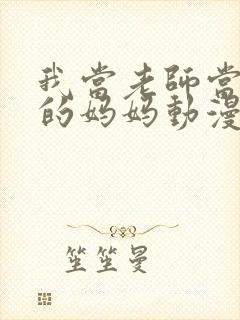 我當老師當
的妈妈動漫
笙笙曼